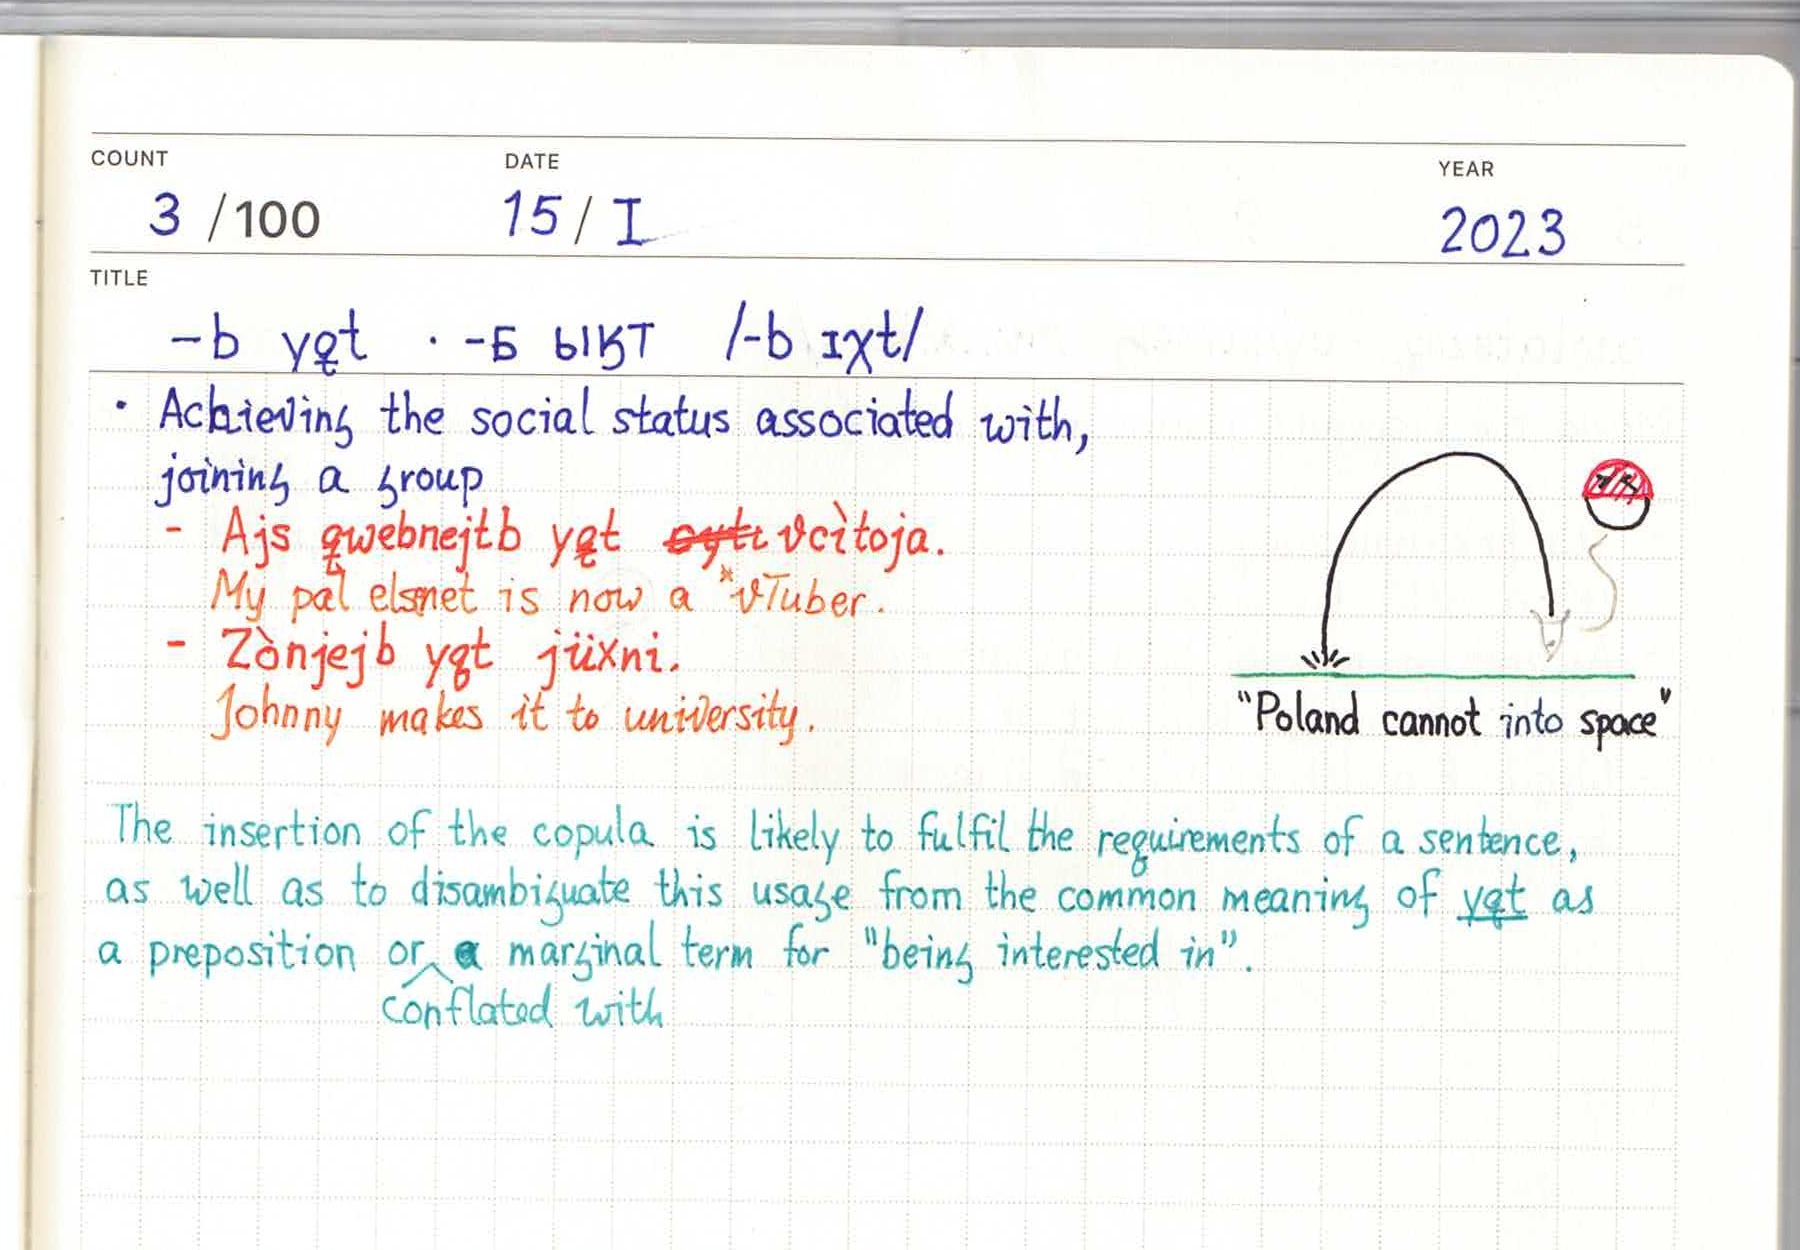 COUNT
3 /100
DATE
15/I
YEAR
2023
TITLE
-b yqt · -Б ЫҔТ /-b ɪχt/
· Achieving the social status associated with,
joining a group
- Ajs qwebnejtb yqt vcìtoja.
My pal elsmet is now a *vTuber.
- Zònjejb yqt jüxni.
Johnny makes it to university.
"Poland cannot into space"
The insertion of the copula is likely to fulfil the requirements of a sentence,
as well as to disambiguate this usage from the common meaning of yqt as
a preposition or a marginal term for "being interested in".
conflated with